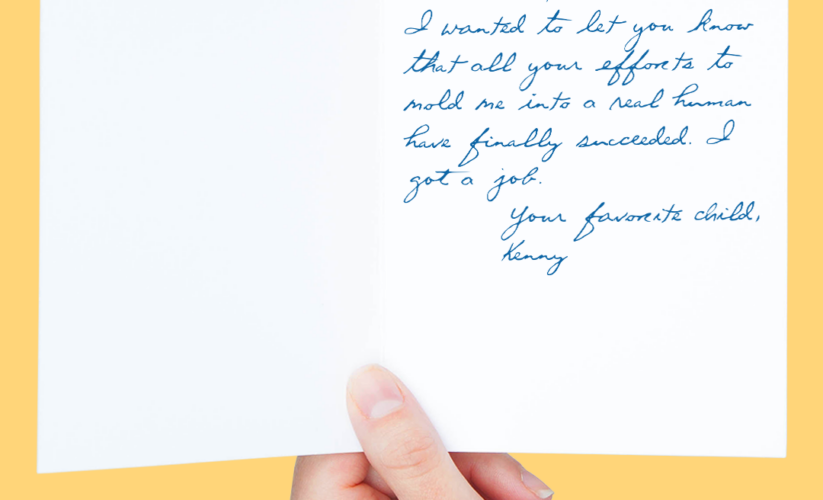 I wanted to let you know
that all your efforts to
mold me into a real human
have finally succeeded. I
got a job.
Your favorite child,
Kenny